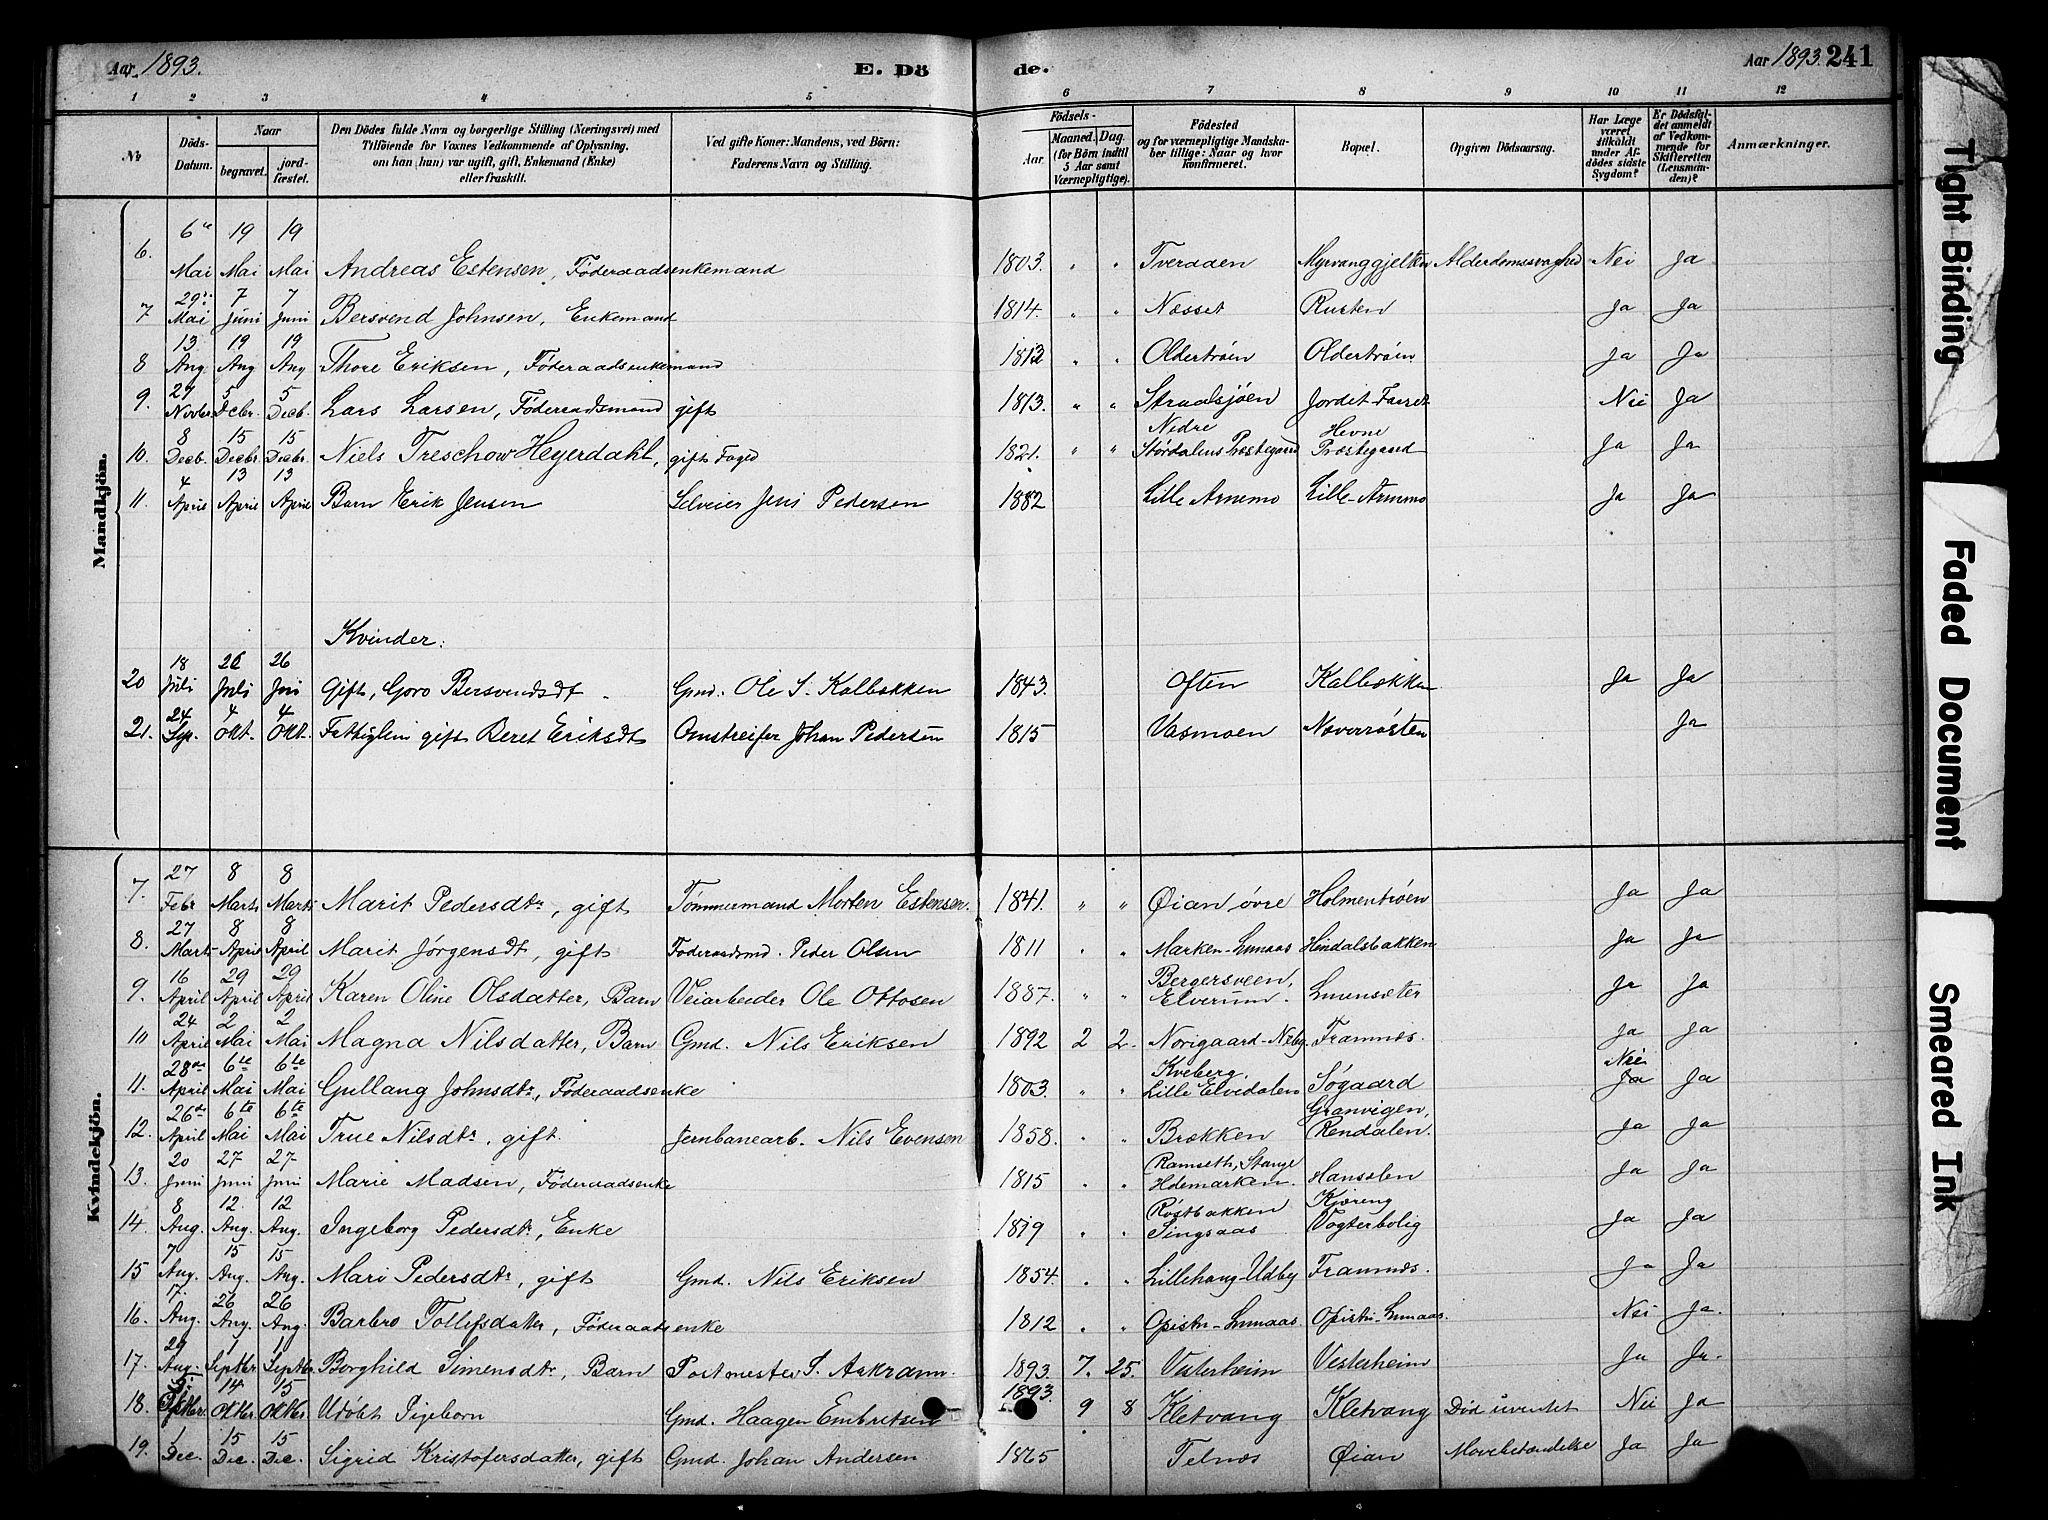 Aar 1893. E. Dö de. Aar 1893. 241
1 2 3 4 5 6 7 8 9 10 11 12
No Döds-Datum. Naar begravet. jord-fæstet. Den Dödes fulde Navn og borgerlige Stilling (Næringsvei) med Tilföiende for Voxnes Vedkommende af Oplysning, om han (hun) var ugift, gift, Enkemand (Enke) eller fraskilt. Ved gifte Koner: Mandens, ved Börn: Faderens Navn og Stilling. Födsels- Aar. Maaned. Dag. (for Börn indtil 5 Aar samt Værnepligtige). Födested og for værnepligtige Mandskaber tillige: Naar og hvor konfirmeret. Bopæl. Opgiven Dödsaarsag. Har Læge været tilkaldt under Afdödes sidste Sygdom? Er Dödsfaldet anmeldt af Vedkommende for Skifteretten (Lensmanden)? Anmærkninger.
Mandkjön.
6. 6te Mai 19 Mai 19 Mai Andreas Estensen, Føderaadsenkemand 1803. " " Tveraaen Myrvanggjelten Alderdomssvaghed Nei Ja
7 29de Mai 7 Juni 7 Juni Bersvend Johnsen, Enkemand 1814. " " Næsset Rusten Ja Ja
8 13 Aug. 19 Aug 19 Aug Thore Eriksen, Føderaadsenkemand 1812 " " Oldertrøen Oldertrøen Ja Ja
9. 27 Novbr. 5 Decbr. 5 Decb. Lars Larsen, Føderaadsmand gift 1813. " " Straalsjøen Jordet-Farret Nei Ja
10. 8 Decb. 15 Decbr. 15 Decbr. Niels Treschow Heyerdahl, gift Foged 1821. " " Nedre Størdalens Præstegaard Hevne Præstegaard Ja Ja
11. 4 April 13 April 13 April Barn Erik Jensen Selveier Jens Pedersen 1882 Lille Arnemo Lille-Arnemo Ja Ja
Kvinder:
20 18 Juli 26 Juli 26 Juli Gift, Goro Bersvendsdt. Gmd. Ole S. Kalbækken 1843. Often Kalbækken Ja Ja
21. 24 Sep. 4 Okt. 4 Okt. Fattiglem gift Beret Eriksdt Omstreifer Johan Pedersen 1815 Vasmoen Ja
Kvindekjön.
7. 27 Febr 8 Marts 8 Marts Marit Pedersdtr, gift Tømmermand Morten Estensen. 1841. " " Øian øvre Holmentrøen Ja Ja
8. 27 Marts 8 April 8 April Marit Jørgensdt, gift Føderaadsmd. Peder Olsen 1811 " " Marken-Lunaas Ja Ja
9. 16 April 29 April 29 April Karen Oline Olsdatter, Barn Veiarbeider Ole Ottosen 1887. " " Bergersveen, Elverum. Lunensæter Ja Ja
10 24 April 2 Mai 2 Mai Magna Nilsdatter, Barn Gmd. Nils Eriksen 1892 2 2. Norigaard-Neby Framnæs. Ja Ja
11. 28de April 6te Mai 6te Mai Gullaug Johnsdtr, Føderaadsenke 1803. " " Kveberg, Lille Elvedalen Søgaard Nei Ja Ja
12. 26de April 6te Mai 6te Mai True Nilsdtr, gift. Jernbanearb. Nils Evensen 1858. " " Brækken Granvigen, Rendalen. Ja Ja
13. 20 Juni 27 Juni 27 Juni Marie Madsen, Føderaadsenke 1815 " " Ramseth, Stange Hdemarken. Ja Ja
14. 8 Aug. 12. Aug. 12 Aug. Ingeborg Pedersdtr, Enke 1819 " " Røstbakken Singsaas Kjøreng Vogterbolig Ja Ja
15 7 Aug. 15 Aug. 15. Aug. Mari Pedersdtr, gift Gmd. Nils Eriksen 1854. " " Lillehaug-Udby Framnæs. Ja Ja
16. 17. Aug. 26 Aug. 26 Aug. Barbro Tollefsdatter, Føderaadsenke 1812 " " Opistu-Lunaas. Opistu-Lunaas. Nei Ja.
17. 29 Aug. 1 Septbr. 1 Septbr. Borghild Simensdtr, Barn Postmester S. Aakrann. 1893. 7. 25. Vesterheim Vesterheim Ja Ja.
18. 5. Oktbr. 14 Oktbr. 15 Oktbr. Udøbt Pigebørn Gmd. Haagen Embretsen 1893. 9 8 Kletvang Kletvang Død uventet Nei Ja
19. 1 Dec. 15 Dec. 15 Dec. Sigrid Kristofersdatter, gift Gmd. Johan Andersen 1865 Telnæs Øian Mavebetændelse Ja Ja
Tight Binding
Faded Document
Smeared Ink